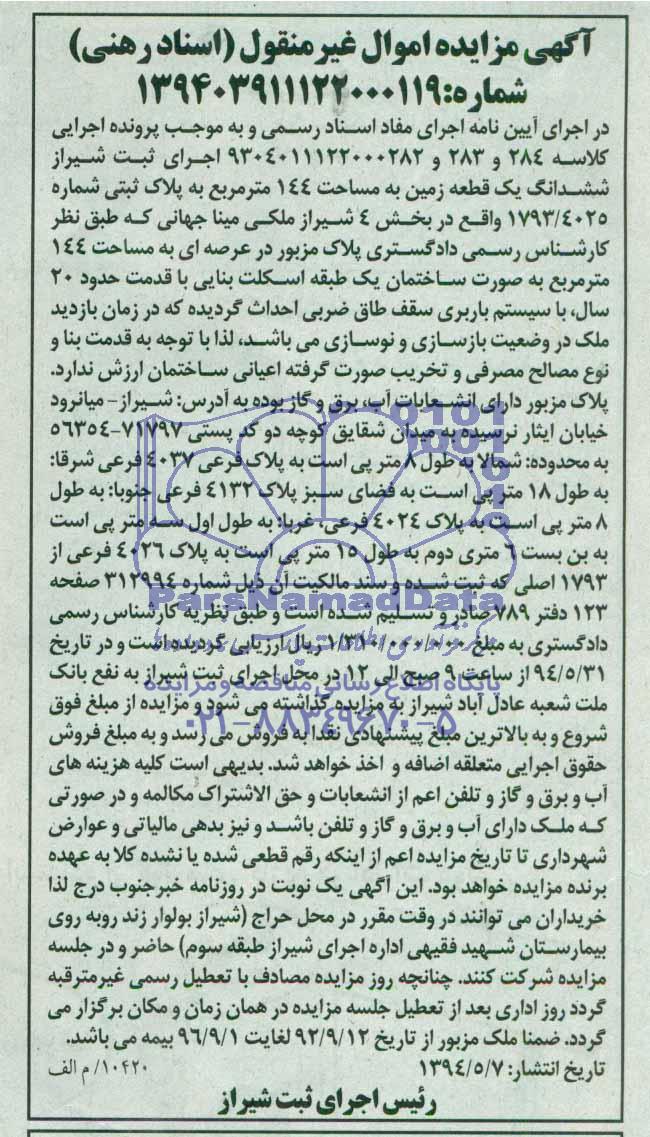 آگهی مزایده اموال غیرمنقول (اسناد رهنی)
شماره: ۱۳۹۴۰۳۹۱۱۱۲۲۰۰۰۱۱۹
در اجرای آیین نامه اجرای مفاد اسناد رسمی و به موجب پرونده اجرایی
کلاسه ۲۸۴ و ۲۸۳ و ۹۳۰۴۰۱۱۱۲۲۰۰۰۲۸۲ اجرای ثبت شیراز
ششدانگ یک قطعه زمین به مساحت ۱۴۴ مترمربع به پلاک ثبتی شماره
۱۷۹۳/۴۰۲۵ واقع در بخش ۴ شیراز ملکی مینا جهانی که طبق نظر
کارشناس رسمی دادگستری پلاک مزبور در عرصه ای به مساحت ۱۴۴
مترمربع به صورت ساختمان یک طبقه اسکلت بنایی با قدمت حدود ۲۰
سال، با سیستم باربری سقف طاق ضربی احداث گردیده که در زمان بازدید
ملک در وضعیت بازسازی و نوسازی می باشد، لذا با توجه به قدمت بنا و
نوع مصالح مصرفی و تخریب صورت گرفته اعیانی ساختمان ارزش ندارد.
پلاک مزبور دارای انشعابات آب، برق و گاز بوده به آدرس: شیراز- میانرود
خیابان ایثار نرسیده به میدان شقایق کوچه دو کد پستی ۷۱۷۹۷-۵۶۳۵۴
به محدوده: شمالا به طول ۸ متر پی است به پلاک فرعی ۴۰۳۷ فرعی شرقا:
به طول ۱۸ متر پی است به فضای سبز پلاک ۴۱۳۲ فرعی جنوبا: به طول
۸ متر پی است به پلاک ۴۰۲۴ فرعی، غربا: به طول اول سه متر پی است
به بن بست ۶ متری دوم به طول ۱۵ متر پی است به پلاک ۴۰۲۶ فرعی از
۱۷۹۳ اصلی که ثبت شده و سند مالکیت آن ذیل شماره ۳۱۲۹۹۴ صفحه
۱۲۳ دفتر ۷۸۹ صادر و تسلیم شده است و طبق نظریه کارشناس رسمی
دادگستری به مبلغ ۱/۳۱۰/۰۰۰/۰۰۰ ریال ارزیابی گردیده است و در تاریخ
۹۴/۵/۳۱ از ساعت ۹ صبح الی ۱۲ در محل اجرای ثبت شیراز به نفع بانک
ملت شعبه عادل آباد شیراز به مزایده گذاشته می شود و مزایده از مبلغ فوق
شروع و به بالاترین مبلغ پیشنهادی نقدا به فروش می رسد و به مبلغ فروش
حقوق اجرایی متعلقه اضافه و اخذ خواهد شد. بدیهی است کلیه هزینه های
آب و برق و گاز و تلفن اعم از انشعابات و حق الاشتراک مکالمه و در صورتی
که ملک دارای آب و برق و گاز و تلفن باشد و نیز بدهی مالیاتی و عوارض
شهرداری تا تاریخ مزایده اعم از اینکه رقم قطعی شده یا نشده کلا به عهده
برنده مزایده خواهد بود. این آگهی یک نوبت در روزنامه خبرجنوب درج لذا
خریداران می توانند در وقت مقرر در محل حراج (شیراز بولوار زند روبه روی
بیمارستان شهید فقیهی اداره اجرای شیراز طبقه سوم) حاضر و در جلسه
مزایده شرکت کنند. چنانچه روز مزایده مصادف با تعطیل رسمی غیرمترقبه
گردد روز اداری بعد از تعطیل جلسه مزایده در همان زمان و مکان برگزار می
گردد. ضمنا ملک مزبور از تاریخ ۹۲/۹/۱۲ لغایت ۹۶/۹/۱ بیمه می باشد.
تاریخ انتشار: ۱۳۹۴/۵/۷
۱۰۴۲۰/ م الف
رئیس اجرای ثبت شیراز
ParsNamadData
پایگاه اطلاع رسانی مناقصه و مزایده
۰۲۱-۸۸۳۴۹۶۷۰-۵